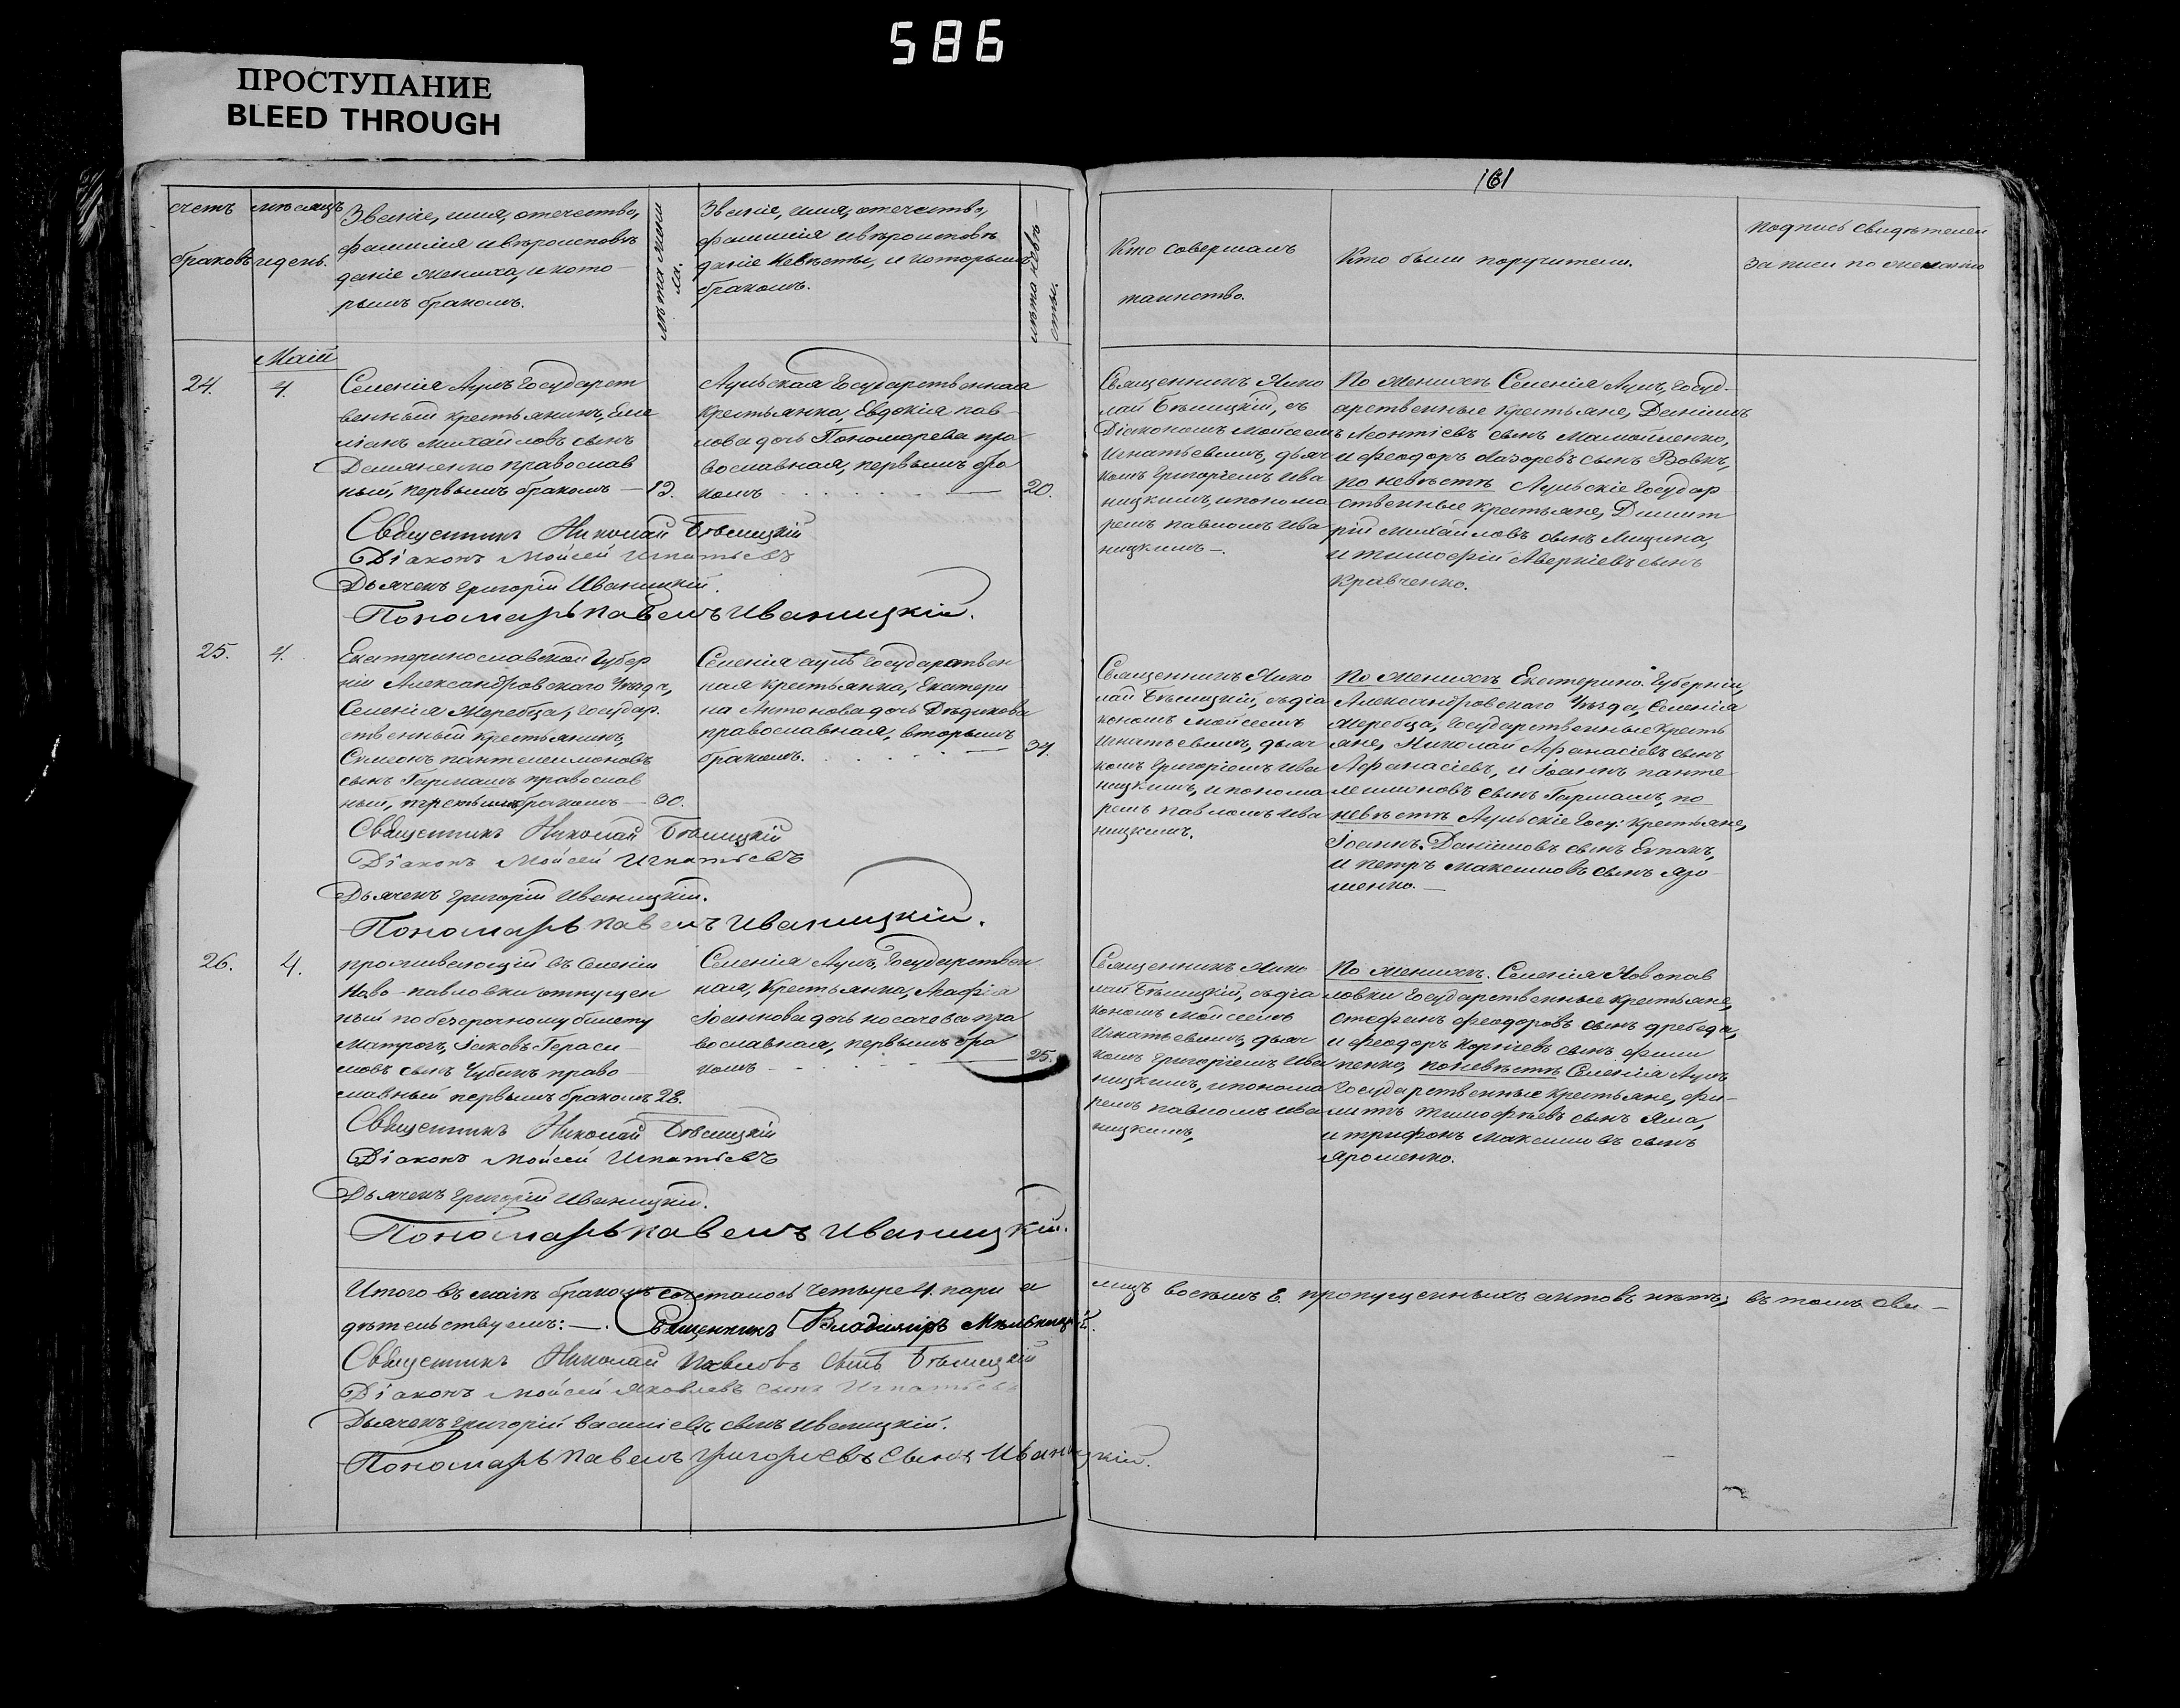 586
ПРОСТУПАНИЕ
BLEED THROUGH
161
счетъ
браковъ
мѣсяцъ
и день.
Званіе, имя, отечество,
фамилія и вѣроисповѣ
даніе жениха, и кото-
рымъ бракомъ.
лѣта жени
ха.
Званіе, имя, отечество,
фамилія и вѣроисповѣ
даніе невѣсты, и которымъ
бракомъ.
лѣта невѣ-
сты.
Кто совершалъ
таинство.
Кто были поручители.
подпись свидѣтелей
записи по желанію
Маій
24.
4.
Селенія Аулъ Государст
венный крестьянинъ, Еме
ліанъ Михайловъ сынъ
Демяненко православ
ный, первымъ бракомъ — 19.
Аульская Государственная
крестьянка, Евдокія пав-
лова дочь Пономарева пра-
вославная, первымъ бра
комъ — 20.
Священникъ Нико
лай Бѣлицкій, съ
Діакономъ Мойсеемъ
Игнатьевымъ, дьяч
комъ Григоріемъ Ива
ницкимъ, и понома
ремъ павломъ Ива
ницкимъ —.
По женихѣ Селенія Аулъ, Госуд-
арственные крестьяне, Даніилъ
Леонтіевъ сынъ Мамойленко,
и феодоръ Лазоревъ сынъ Вовкъ,
по невѣстѣ Аульскіе Государ
ственные крестьяне, Димит
рій Михайловъ сынъ Лищина,
и тимофій Аверкіевъ сынъ
Кравченко.
Священникъ Николай Бѣлицкій
Діаконъ Мойсей Игнатьевъ
Дьячекъ Григорій Иваницкій.
Пономарь павелъ Иваницкій.
25.
4.
Екатеринославской Губер
ніи Александровскаго Уѣзда,
Селенія Жеребца, Государ.
ственный крестьянинъ,
Симеонъ пантелеимоновъ
сынъ Гармашъ православ
ный, третьимъ бракомъ — 30.
Селенія аулъ Государствен
ная крестьянка, Екатери
на Антонова дочь Дѣдикова
православная, вторымъ
бракомъ. — 34.
Священникъ Нико
лай Бѣлицкій, съ діа
кономъ Мойсеемъ
Игнатьевымъ, дьяч
комъ Григоріемъ Ива
ницкимъ, и понома
ремъ павломъ Ива
ницкимъ.
По женихѣ Екатерино. Губерніи,
Александровскаго Уѣзда, Селенія
Жеребца, Государственные Кресть
яне, Николай Афанасіевъ сынъ
Афанасіевъ, и Іоаннъ панте-
леимоновъ сынъ Гармашъ, по
невѣстѣ Аульскіе Госу: Крестьяне,
Іоаннъ Даніиловъ сынъ Епакъ,
и петръ Максимовъ сынъ Яро
шенко. —
Священникъ Николай Бѣлицкій
Діаконъ Мойсей Игнатьевъ
Дьячекъ Григорій Иваницкій.
Пономарь павелъ Иваницкій.
26.
4.
проживающій въ Селеніи
Ново-павловки отпущен
ный по безсрочному билету
Матрозъ, Іаковъ Гераси-
мовъ сынъ Чубакъ право
славный первымъ бракомъ 28.
Селенія Аулъ, Государствен
ная, Крестьянка, Агафія
Іоаннова дочь Косачева пра
вославная, первымъ бра
комъ — 25.
Священникъ Нико
лай Бѣлицкій, съ діа
кономъ Мойсеемъ
Игнатьевымъ, дьяч
комъ Григоріемъ Ива
ницкимъ, и понома
ремъ павломъ Ива
ницкимъ,
По женихѣ. Селенія Новопав
ловки Государственные крестьяне,
Стефанъ феодоровъ сынъ дребеда,
и феодоръ Корніевъ сынъ фили
пенко, по невѣстѣ Селенія Аулъ
Государственные Крестьяне, Фи-
липъ тимофѣевъ сынъ Яма,
и трифонъ Максимовъ сынъ
Ярошенко.
Священникъ Николай Бѣлицкій
Діаконъ Мойсей Игнатьевъ
Дьячекъ Григорій Иваницкій.
Пономарь павелъ Иваницкій.
Итого въ маіѣ бракомъ сочеталось Четыре 4. пары а лицъ восемь 8. пропущенныхъ актовъ нѣтъ; въ томъ сви-
дѣтельствуемъ: —. Священникъ Владиміръ Мѣльницкій.
Священникъ Николай Павловъ сынъ Бѣлицкій
Діаконъ Мойсей Яковлевъ сынъ Игнатьевъ
Дьячекъ Григорій Василіевъ сынъ Иваницкій.
Пономарь павелъ Григорьевъ сынъ Иваницкій.